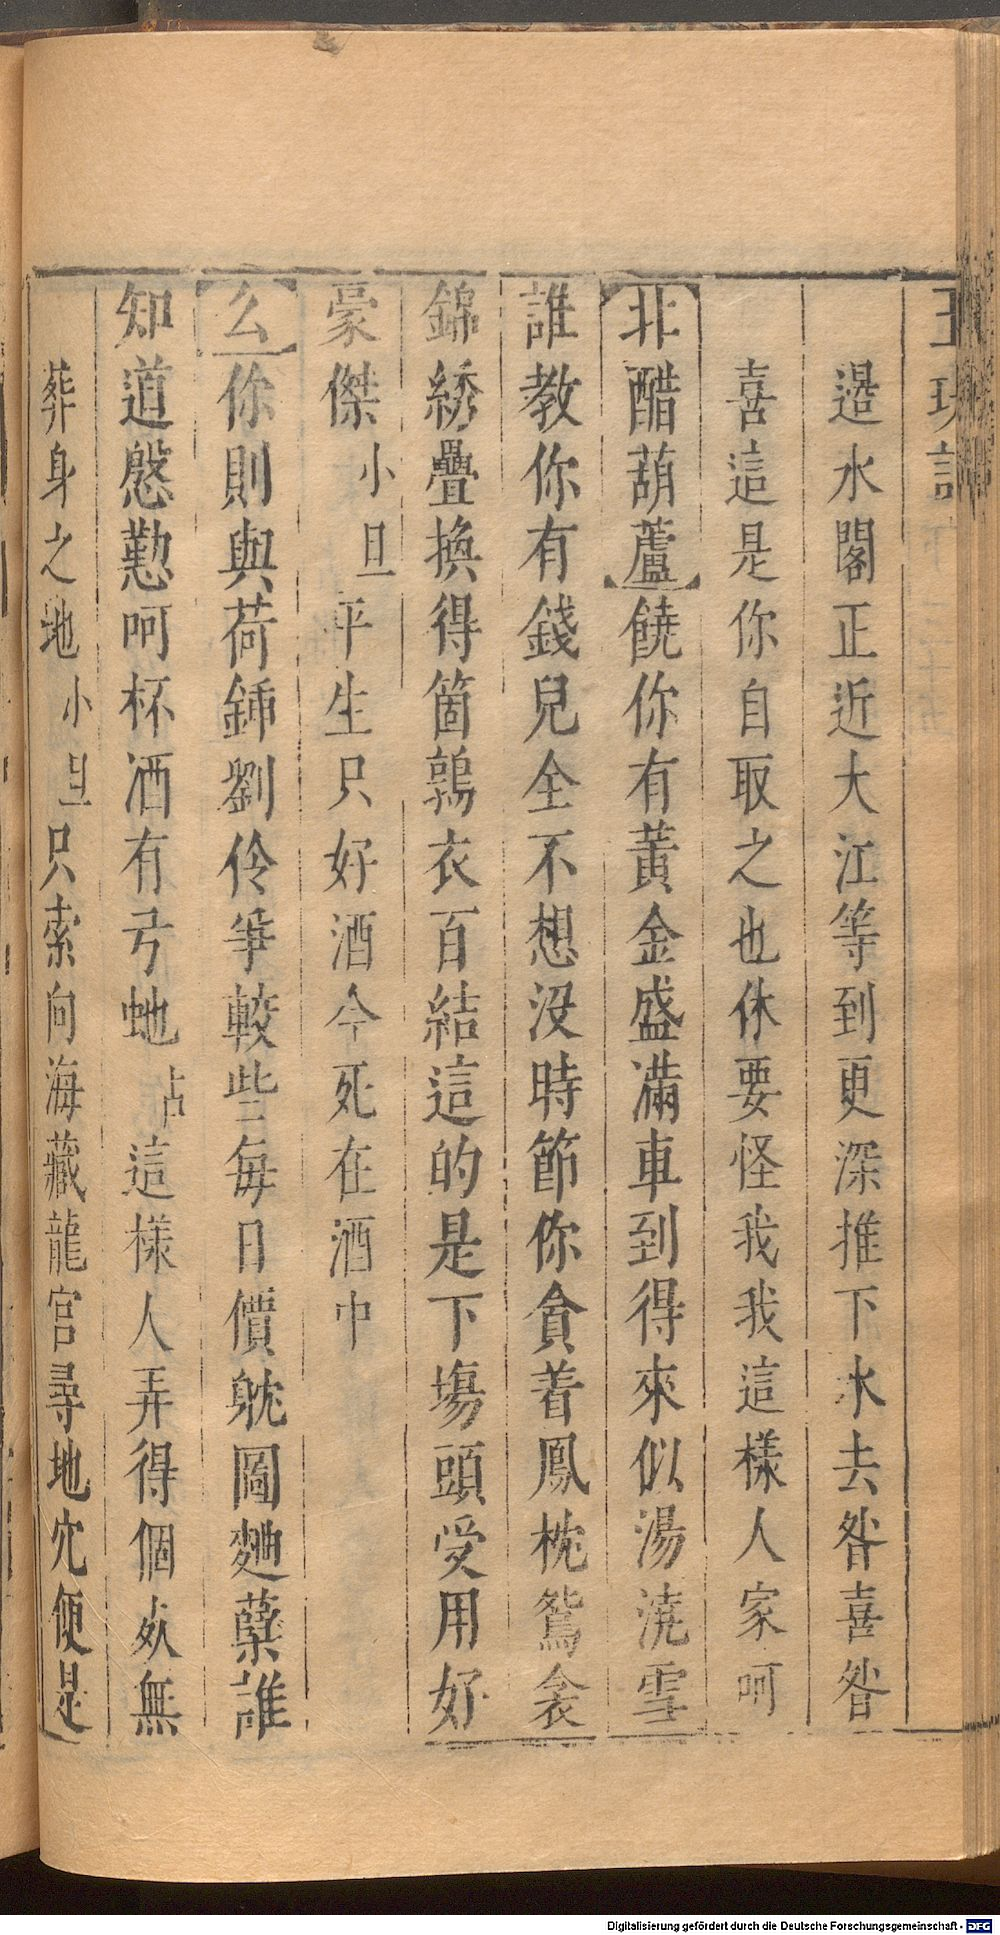 玉玦記
邉水閣正近大江等到更深推下水去咎喜咎
喜這是你自取之也休要怪我我這樣人家呵
北醋葫蘆饒你有黃金盛滿車到得來似湯澆雪
誰教你有錢兒全不想没時節你貪着鳳枕鴛衾
錦綉疊換得箇鶉衣百結這的是下塲頭受用好
豪傑小旦平生只好酒今死在酒中
么你則與荷鍤劉伶爭較些每日價躭圖麯蘖誰
知道慇懃呵杯酒有弓虵占這樣人弄得個死無
葬身之地小旦只索向海藏龍宮尋地穴便是
Digitalisierung gefördert durch die Deutsche Forschungsgemeinschaft - DFG